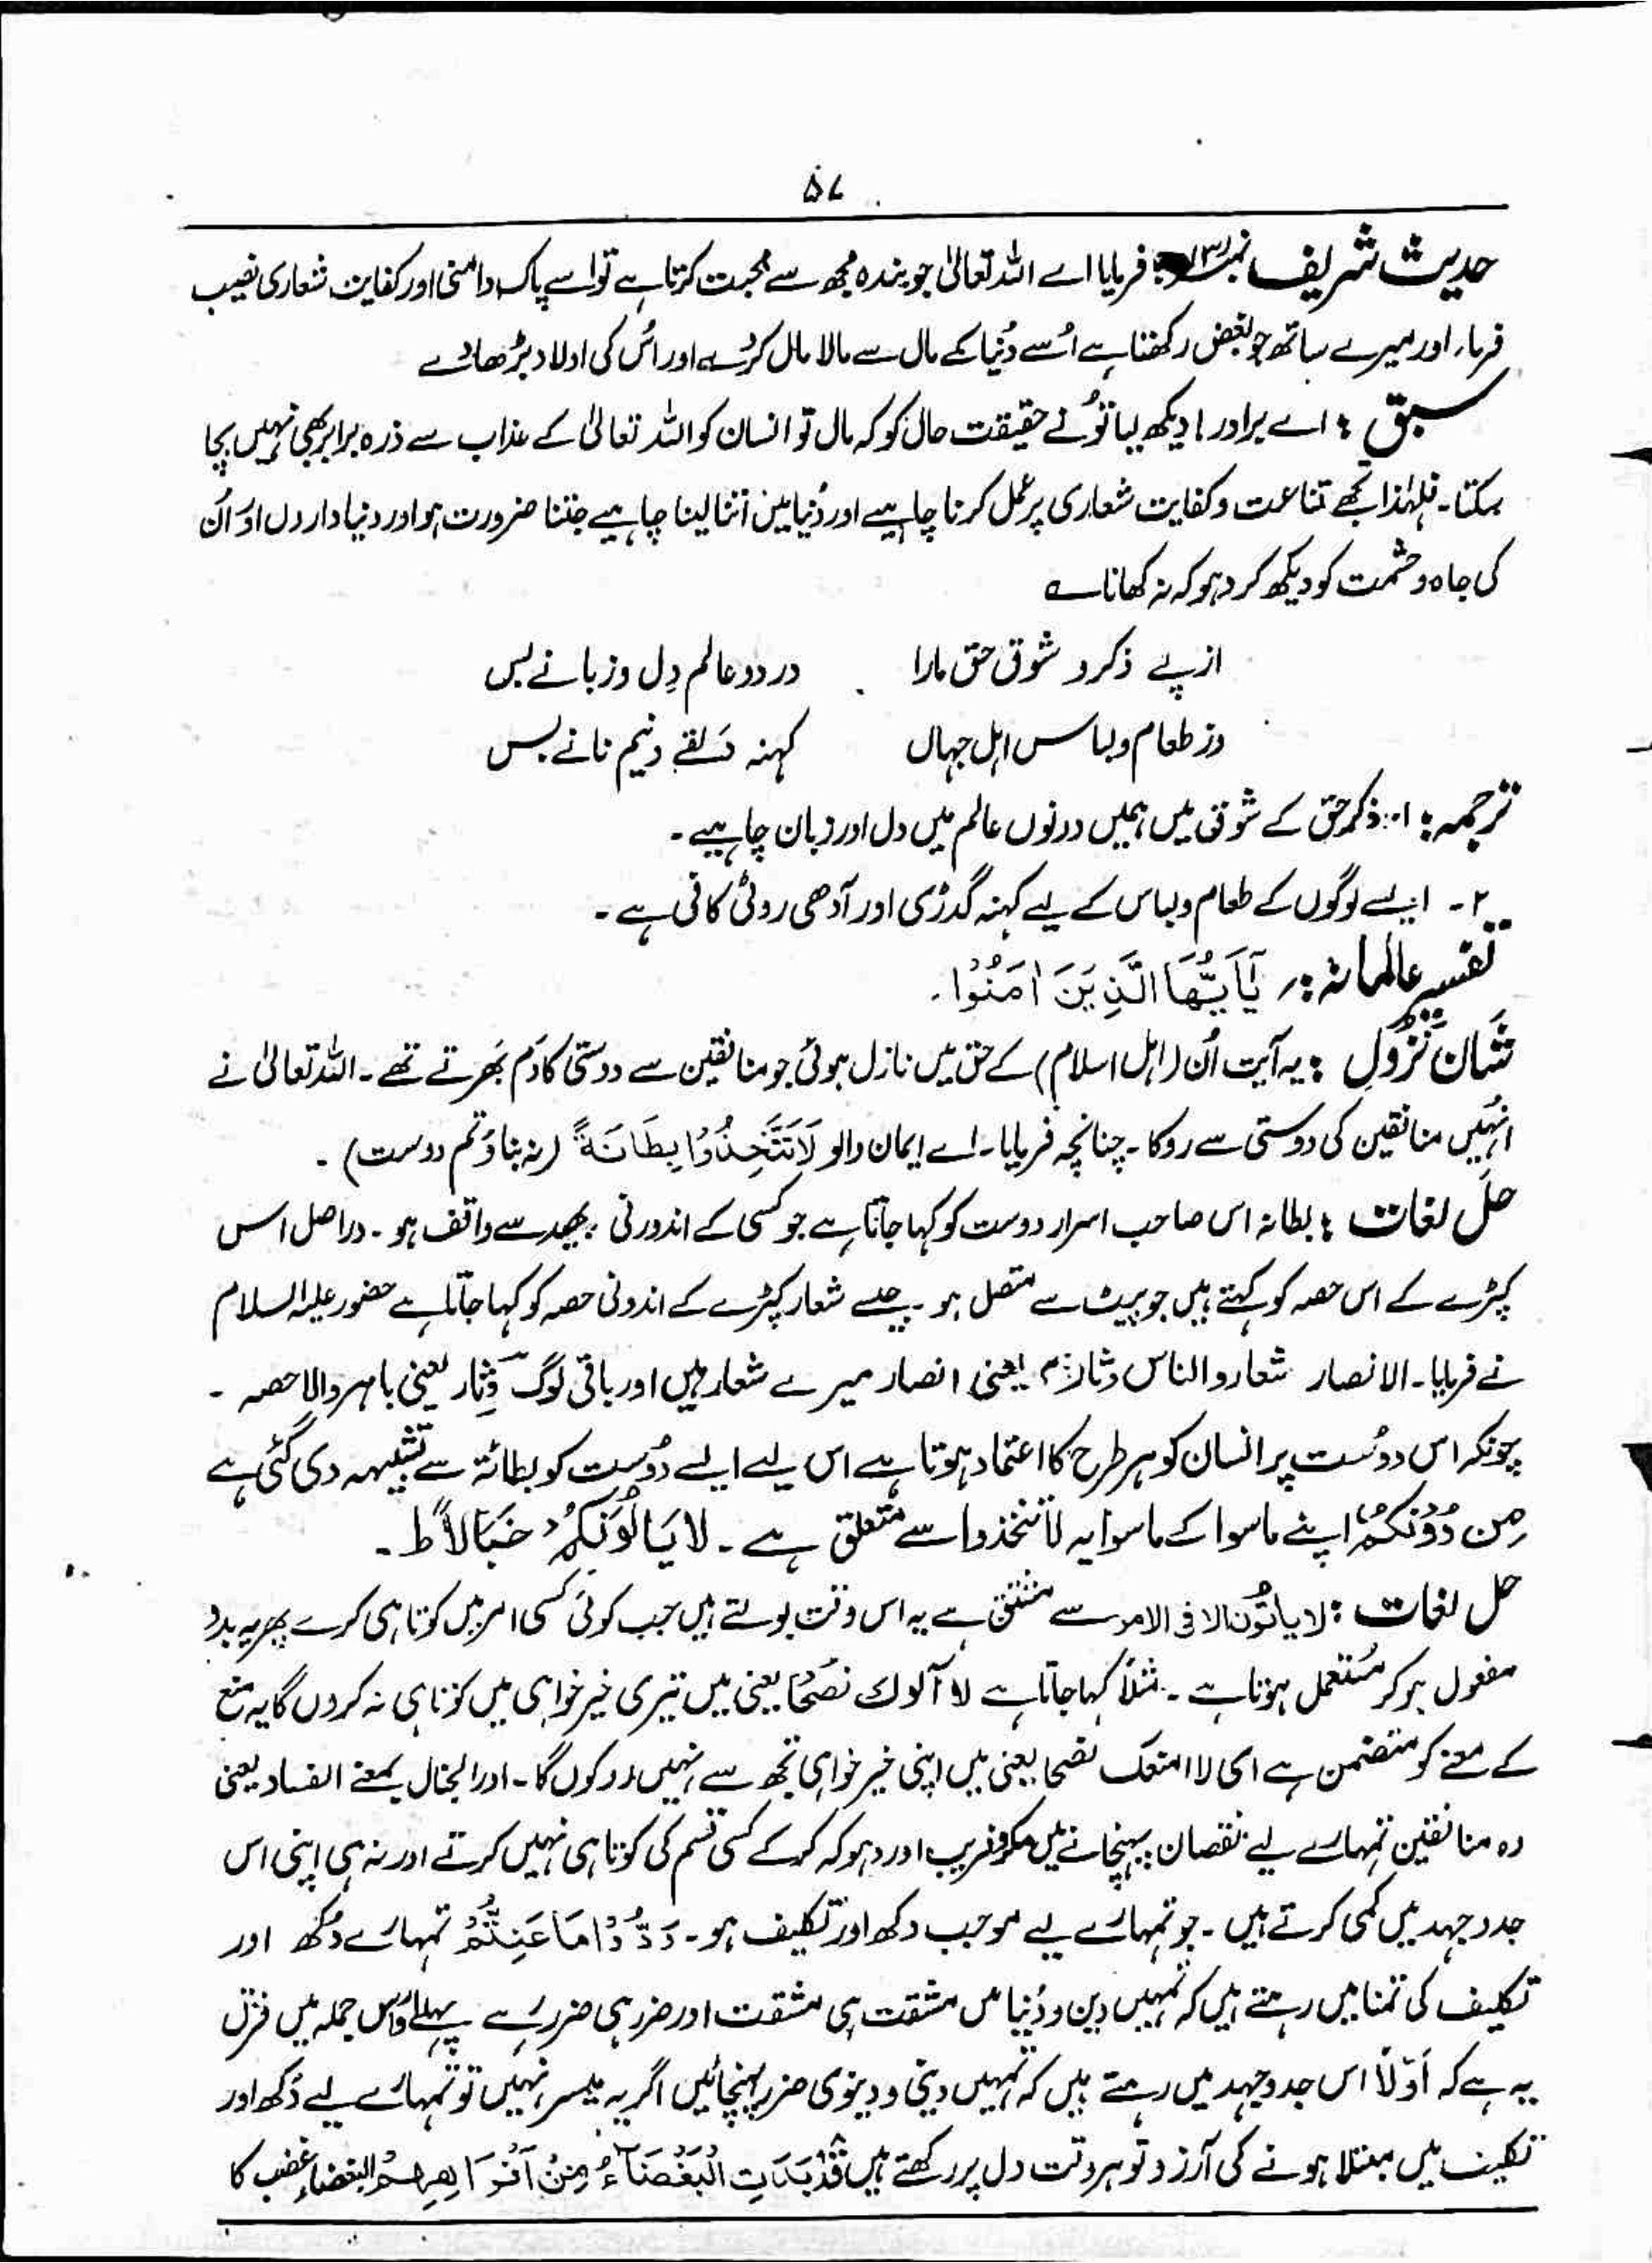 ۵۷
حدیث شریف نمبر۱۳ فرمایا اے اللہ تعالیٰ جو بندہ مجھ سے محبت کرتا ہے تو اسے پاک دامنی اور کفایت شعاری نصیب
فرما، اور میرے ساتھ جو بغض رکھتا ہے اُسے دُنیا کے مال سے مالا مال کردے اور اُس کی اولاد بڑھا دے
سبق : اے برادر! دیکھ لیا تُو نے حقیقت حال کو کہ مال تو انسان کو اللہ تعالیٰ کے عذاب سے ذرہ برابر بھی نہیں بچا
سکتا۔ فلہٰذا تجھے قناعت و کفایت شعاری پر عمل کرنا چاہیے اور دُنیا میں اتنا لینا چاہیے جتنا ضرورت ہو اور دنیا داروں اور اُن
کی جاہ و حشمت کو دیکھ کر دہوکہ نہ کھانا ؎
از پے ذکر و شوق حق مارا در دو عالم دِل و زبانے بس
وز طعام و لباس اہل جہاں کہنہ دَلقے و نیم نانے بس
ترجمہ: ۱۔ ذکر حق کے شوق میں ہمیں دونوں عالم میں دل اور زبان چاہیے۔
۲۔ ایسے لوگوں کے طعام و لباس کے لیے کہنہ گدڑی اور آدھی روٹی کافی ہے۔
تفسیر عالمانہ: یٰٓاَیُّھَا الَّذِیْنَ اٰمَنُوْا۔
شَان نُزُولِ : یہ آیت اُن (اہل اسلام) کے حق میں نازل ہوئی جو منافقین سے دوستی کا دَم بَھرتے تھے۔ اللہ تعالیٰ نے
انہیں منافقین کی دوستی سے روکا۔ چنانچہ فرمایا۔ اے ایمان والو لَا تَتَّخِذُوْا بِطَانَۃً (نہ بناؤ تم دوست)۔
حلِ لغات : بطانہ اس صاحب اسرار دوست کو کہا جاتا ہے جو کسی کے اندورنی بھید سے واقف ہو۔ دراصل اس
کپڑے کے اس حصہ کو کہتے ہیں جو پیٹ سے متصل ہو۔ جیسے شعار کپڑے کے اندونی حصہ کو کہا جاتا ہے حضور علیہ السلام
نے فرمایا۔ الانصار شعار والناس دثار یعنی انصار میرے شعار ہیں اور باقی لوگ دِثار یعنی باہر والا حصہ۔
چونکہ اس دوست پر انسان کو ہر طرح کا اعتماد ہوتا ہے اس لیے ایسے دُوست کو بطانۃ سے تشبیہہ دی گئی ہے
مِن دُوْنِکُمْ اپنے ماسوا کے ماسوا یہ لا تتخذوا سے متعلق ہے۔ لَا یَاْلُوْنَکُمْ خَبَالًا ط۔
حل لغات : لا یالُوْن الا فی الامر سے مشتق ہے یہ اس وقت بولتے ہیں جب کوئی کسی امر میں کوتاہی کرے پھر یہ بدو
مفعول ہو کر مستعمل ہوتا ہے۔ مثلاً کہا جاتا ہے لا آلوك نُصْحًا یعنی میں تیری خیر خواہی میں کوتاہی نہ کروں گا یہ منع
کے معنے کو متضمن ہے ای لا امنعک نصحا یعنی میں اپنی خیر خواہی تجھ سے نہیں روکوں گا۔ اور الخبال بمعنے الفساد یعنی
وہ منافقین تمہارے لیے نقصان پہنچانے میں مکر و فریب اور دہوکہ کرکے کسی قسم کی کوتاہی نہیں کرتے اور نہ ہی اپنی اس
جدوجہد میں کمی کرتے ہیں۔ جو تمہارے لیے موجب دکھ اور تکلیف ہو۔ وَدُّوْا مَا عَنِتُّمْ تمہارے دُکھ اور
تکلیف کی تمنا میں رہتے ہیں کہ تمہیں دین و دُنیا میں مشقت ہی مشقت اور ضرر ہی ضرر رہے پہلے اور اس جملہ میں فرق
یہ ہے کہ اَوّلاً اس جدوجہد میں رہتے ہیں کہ تمہیں دینی و دینوی ضرر پہنچائیں اگر یہ میسر نہیں تو تمہارے لیے دُکھ اور
تکلیف میں مبتلا ہونے کی آرزو تو ہر وقت دل پر رکھتے ہیں قَدْ بَدَتِ الْبَغْضَآءُ مِنْ اَفْوَاھِھِمْ البغضاء غضب کا